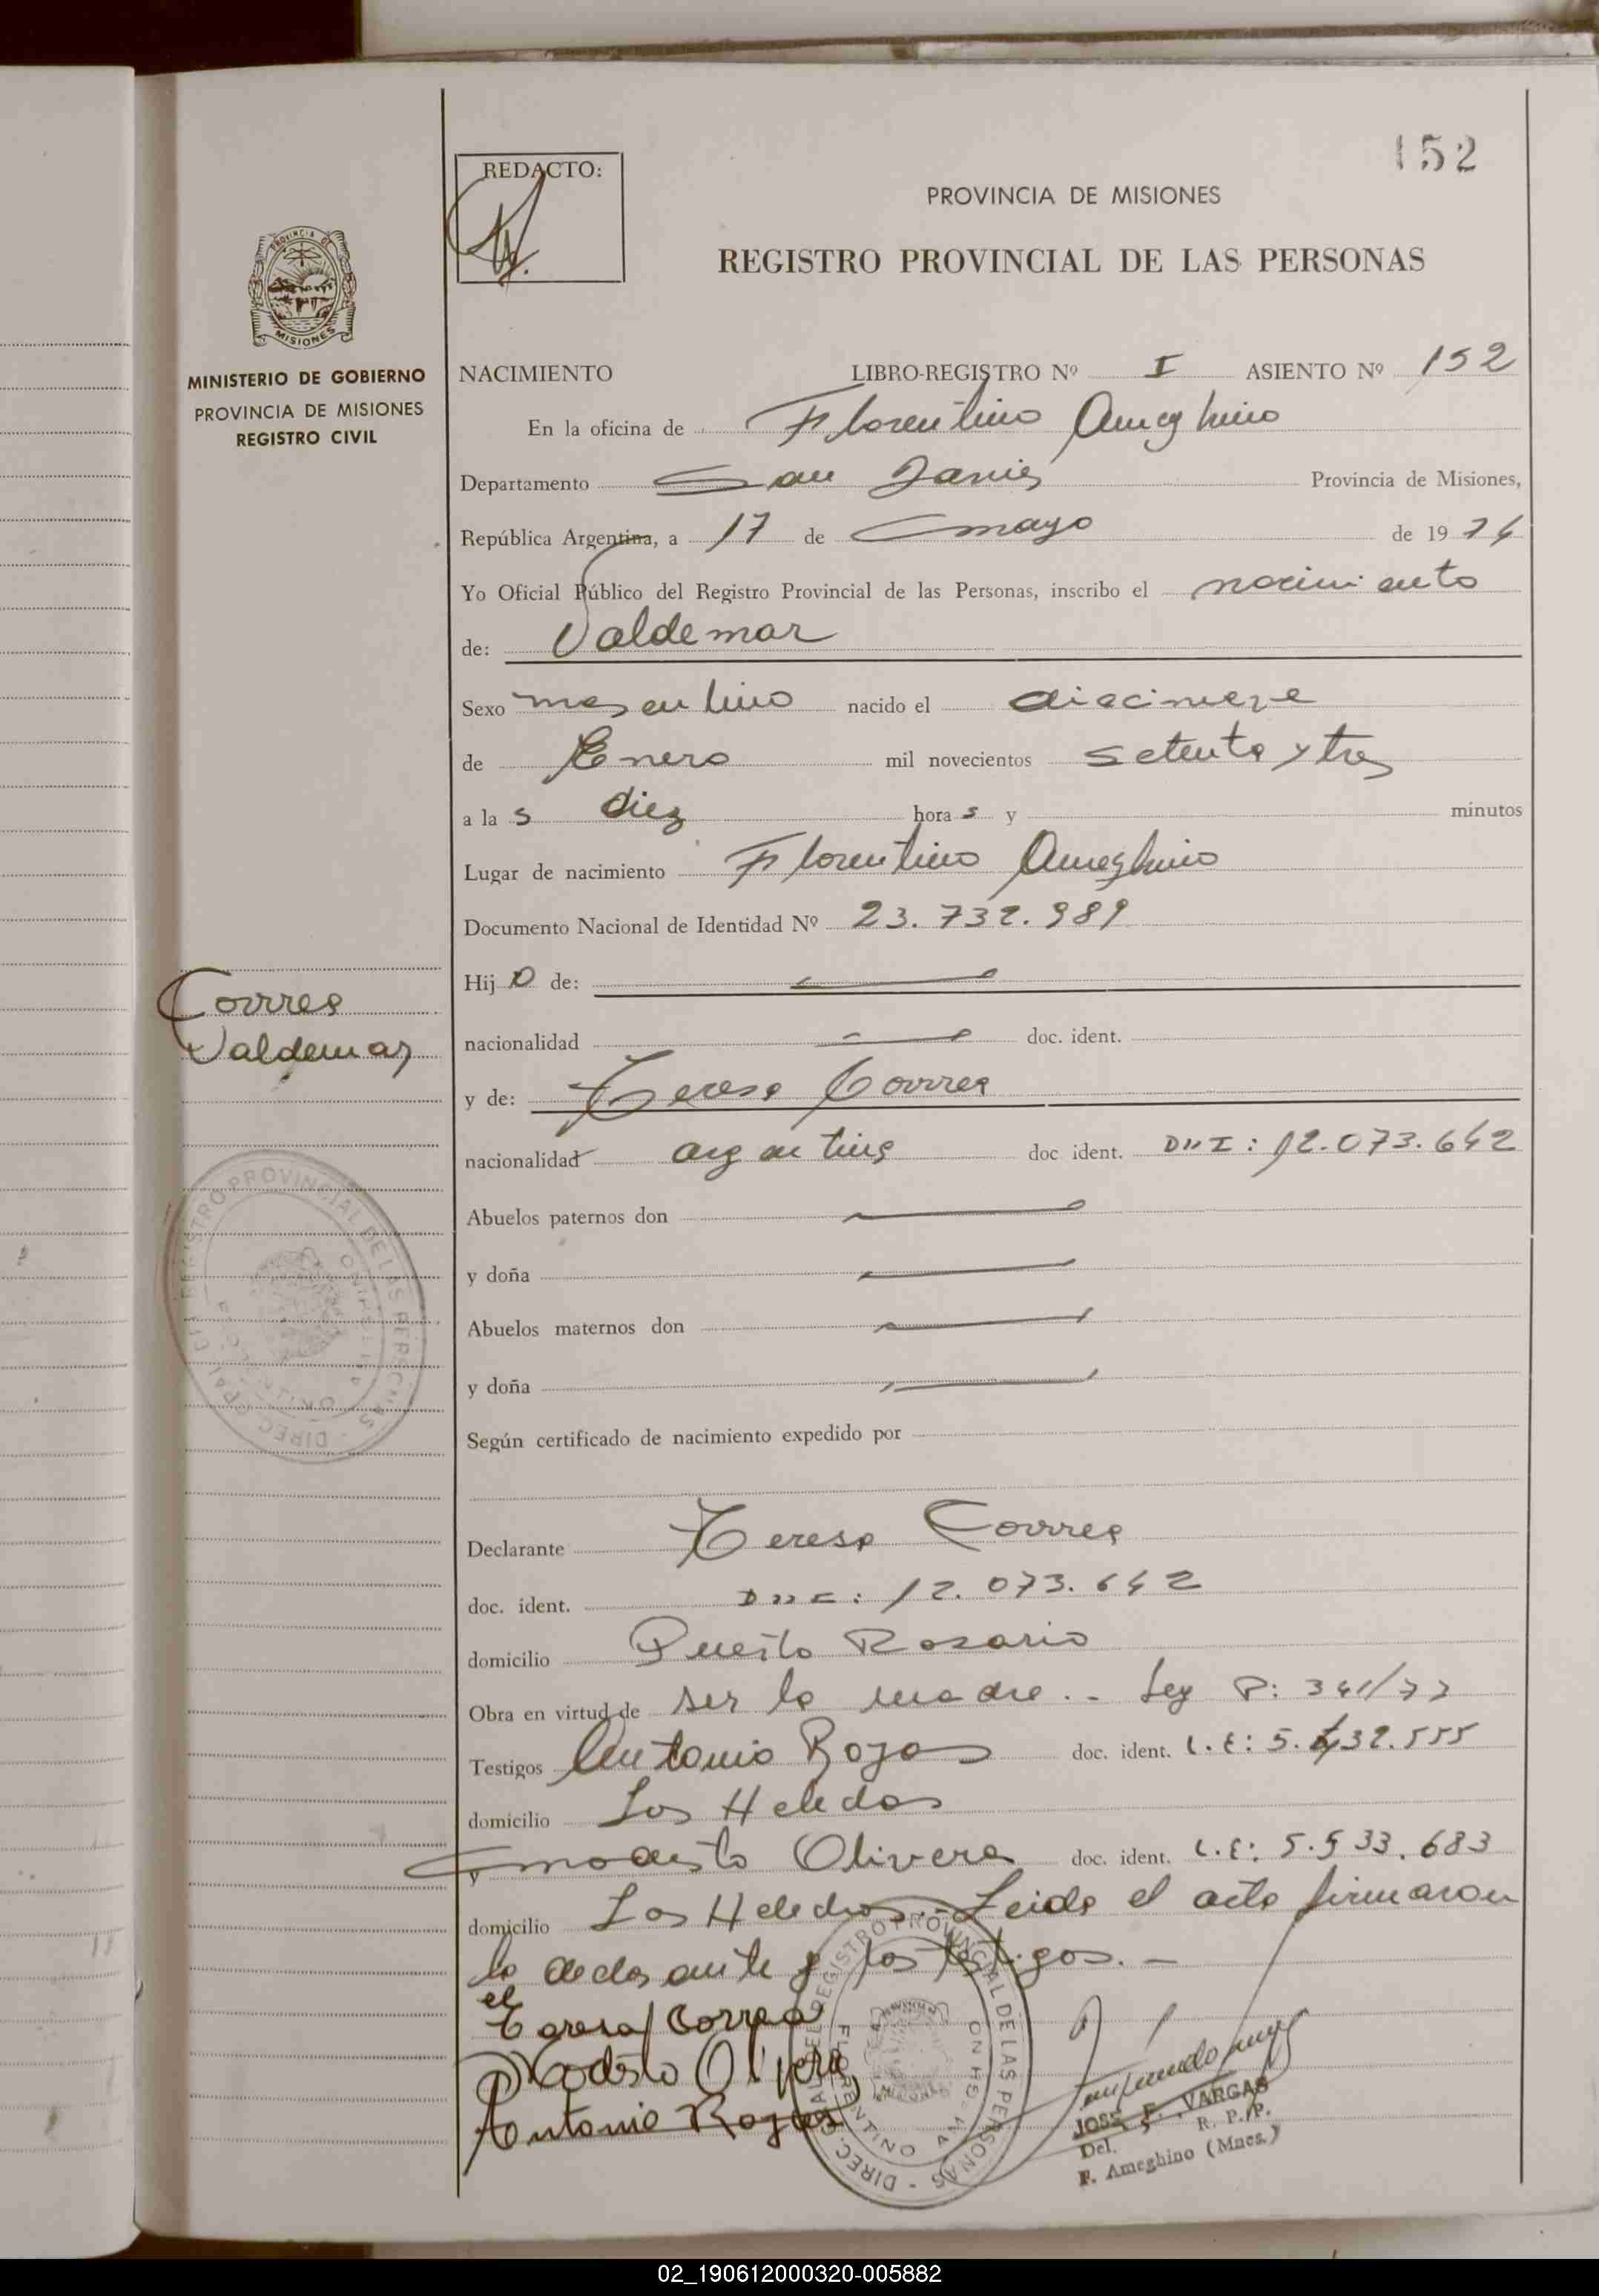 152
REDACTO:
PROVINCIA DE MISIONES
REGISTRO PROVINCIAL DE LAS PERSONAS
PROVINCIA DE
MISIONES
MINISTERIO DE GOBIERNO
PROVINCIA DE MISIONES
REGISTRO CIVIL
NACIMIENTO LIBRO-REGISTRO Nº I ASIENTO Nº 152
En la oficina de Florentino Ameghino
Departamento San Javier Provincia de Misiones,
República Argentina, a 17 de mayo de 19
Yo Oficial Público del Registro Provincial de las Personas, inscribo el nacimiento
de: Valdemar
Sexo masculino nacido el diecinueve
de Enero mil novecientos setenta y tres
a las diez horas y minutos
Lugar de nacimiento Florentino Ameghino
Documento Nacional de Identidad Nº 23.732.989
Hijo de:
nacionalidad doc. ident.
Correa
Valdemar
y de: Teresa Correa
nacionalidad argentina doc ident. DNI: 12.073.642
Abuelos paternos don
y doña
Abuelos maternos don
y doña
Según certificado de nacimiento expedido por
Declarante Teresa Correa
doc. ident. DNI: 12.073.642
domicilio Puerto Rosario
Obra en virtud de ser la madre.- Ley P: 341/77
Testigos Antonio Rojas doc. ident. L.E: 5.
domicilio Los Helechos
y modesto Olivera doc. ident. L.E: 5.533.683
domicilio Los Helechos.- Leida el acta firmaron
la declarante y los testigos.-
Teresa Correa
Modesto Olivera
Antonio Rojas
DIREC. GRAL. DEL REGISTRO PROVINCIAL DE LAS PERSONAS
FLORENTINO AMEGHINO
JOSE F. VARGAS
Del. R. P. P.
F. Ameghino (Mnes.)
02_190612000320-005882